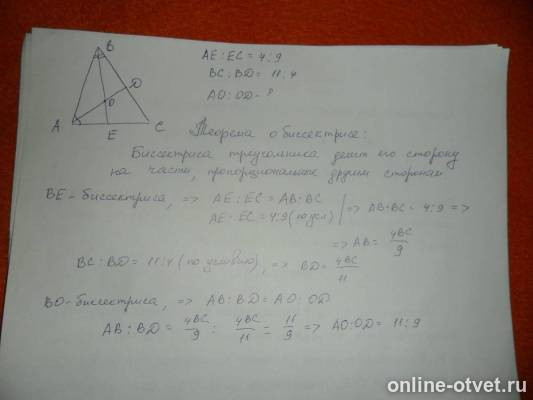 B
D
O
A
E
C
AE:EC = 4:9
BC:BD = 11:4
AO:OD - ?
Теорема о биссектрисе:
Биссектриса треугольника делит его сторону
на части, пропорциональные другим сторонам
BE - биссектриса, => AE:EC = AB:BC
AE:EC = 4:9 (по усл) | => AB:BC = 4:9 =>
=> AB = 4BC/9
BC:BD = 11:4 (по условию), => BD = 4BC/11
BO - биссектриса, => AB:BD = AO:OD
AB:BD = 4BC/9 : 4BC/11 = 11/9 => AO:OD = 11:9
online-otvet.ru